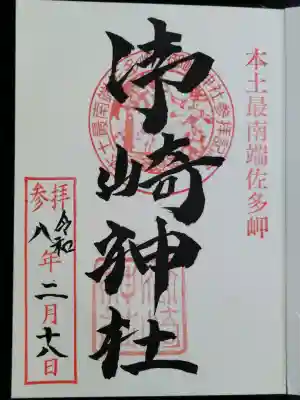 本土最南端佐多岬
御崎神社
参拝
令和
八年二月十八日